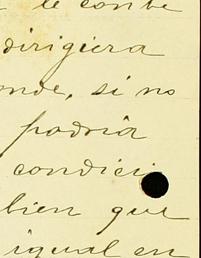 le conte
dirigiera
onde, si no
podría
condici
bien que
igual en